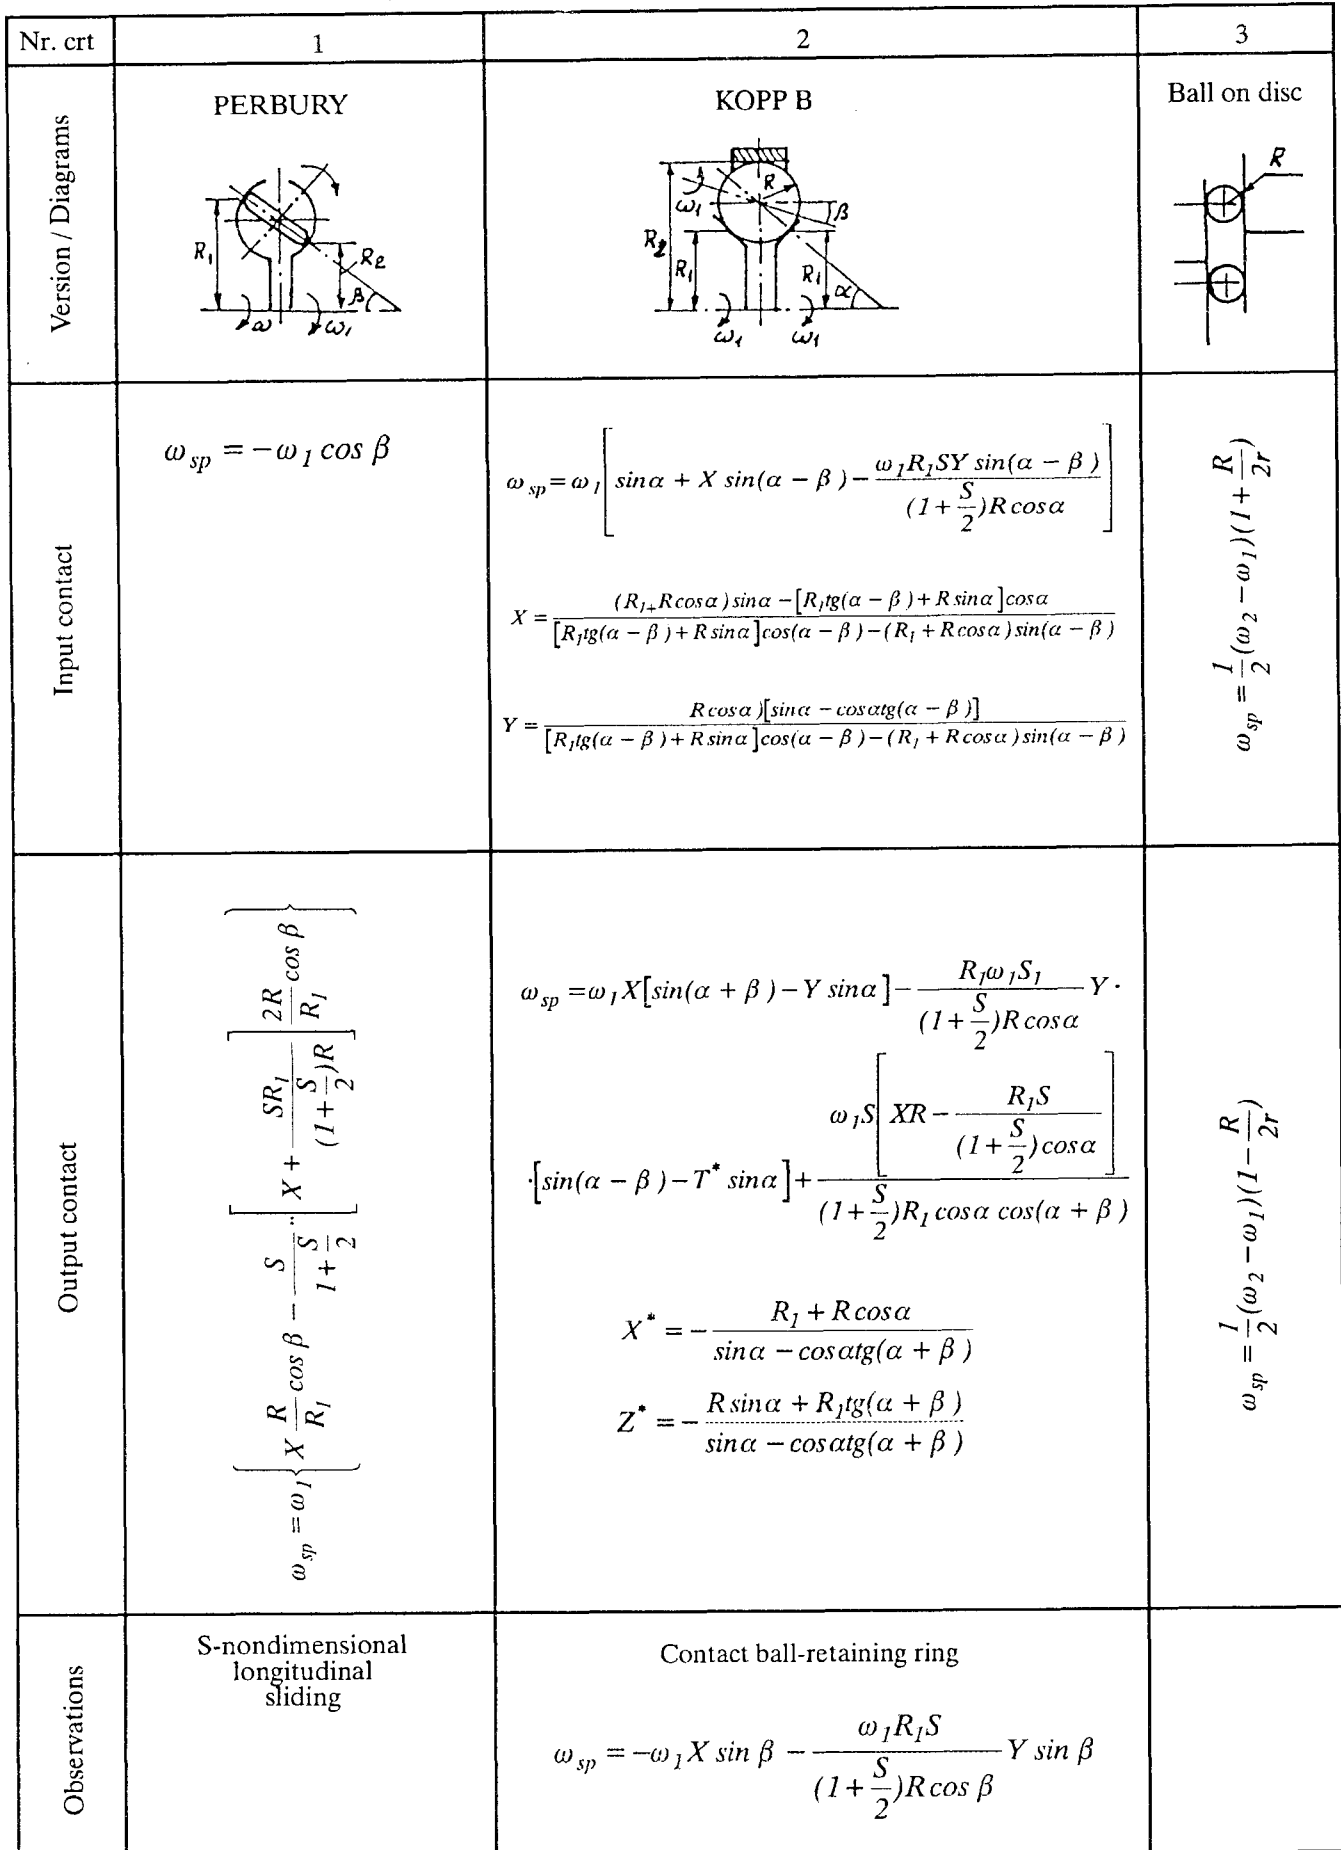 Nr. crt 1 2 3
Version / Diagrams
PERBURY
R₁
R₂
β
ω
ω₁
KOPP B
ω₁
R
β
R₂
R₁
R₁
α
ω₁
ω₁
Ball on disc
R
Input contact
ω_sp = -ω₁ cos β
ω_sp = ω₁ [ sinα + X sin(α - β) - ω₁R₁SY sin(α - β) / ((1 + S/2)R cosα) ]
X = ((R₁₊R cosα) sinα - [R₁tg(α - β) + R sinα]cosα) / ([R₁tg(α - β) + R sinα]cos(α - β) - (R₁ + R cosα) sin(α - β))
Y = (R cosα)[sinα - cosαtg(α - β)]) / ([R₁tg(α - β) + R sinα]cos(α - β) - (R₁ + R cosα) sin(α - β))
ω_sp = 1/2 (ω₂ - ω₁)(1 + R/2r)
Output contact
ω_sp = ω₁ { X R/R₁ cos β - S/(1 + S/2) .. [ X + SR₁/((1 + S/2)R) ] 2R/R₁ cos β }
ω_sp = ω₁X[sin(α + β) - Y sinα] - R₁ω₁S₁ / ((1 + S/2)R cosα) Y ·
· [sin(α - β) - T* sinα] + ω₁S [ XR - R₁S / ((1 + S/2) cosα) ] / ((1 + S/2)R₁ cosα cos(α + β))
X* = - (R₁ + R cosα) / (sinα - cosαtg(α + β))
Z* = - (R sinα + R₁tg(α + β)) / (sinα - cosαtg(α + β))
ω_sp = 1/2 (ω₂ - ω₁)(1 - R/2r)
Observations
S-nondimensional
longitudinal
sliding
Contact ball-retaining ring
ω_sp = -ω₁X sin β - ω₁R₁S / ((1 + S/2)R cos β) Y sin β